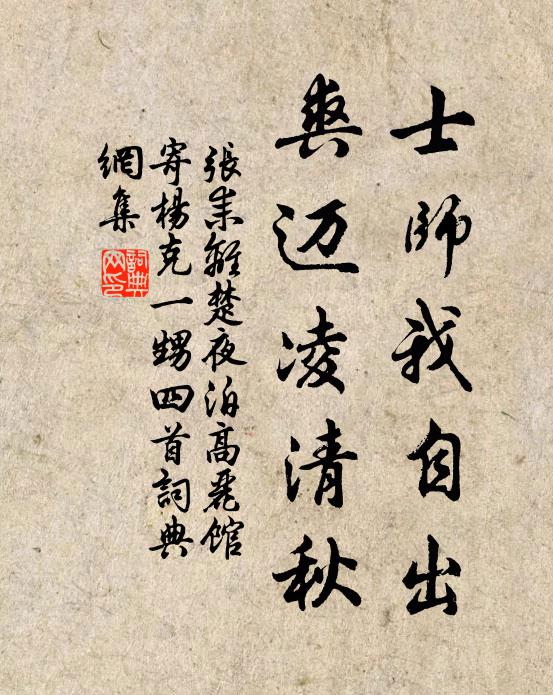 士師我自出
爽迈凌清秋
張耒離楚夜泊高麗館
寄楊克一甥四首詞典
網集
詞典
网印